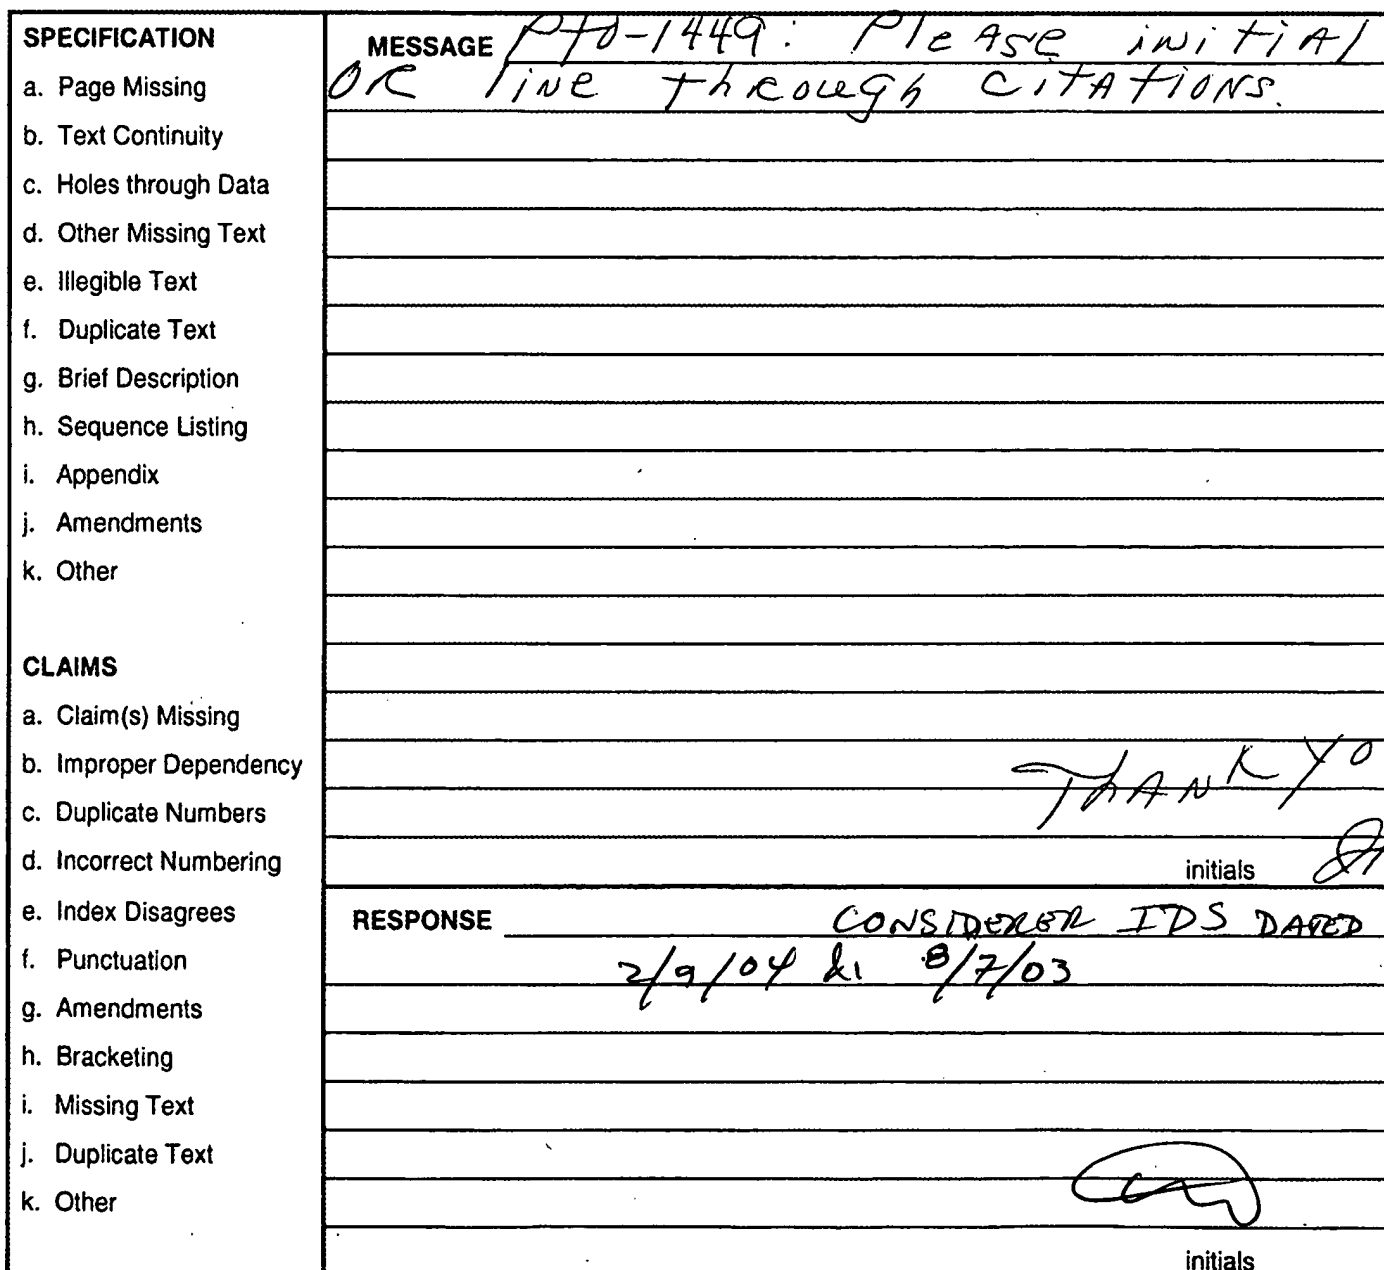 SPECIFICATION
a. Page Missing
b. Text Continuity
c. Holes through Data
d. Other Missing Text
e. Illegible Text
f. Duplicate Text
g. Brief Description
h. Sequence Listing
i. Appendix
j. Amendments
k. Other
CLAIMS
a. Claim(s) Missing
b. Improper Dependency
c. Duplicate Numbers
d. Incorrect Numbering
e. Index Disagrees
f. Punctuation
g. Amendments
h. Bracketing
i. Missing Text
j. Duplicate Text
k. Other
MESSAGE PTO-1449: Please initial
OR line through citations.
THANK YO
initials
RESPONSE CONSIDERER IDS DATED
2/9/04 & 8/7/03
initials